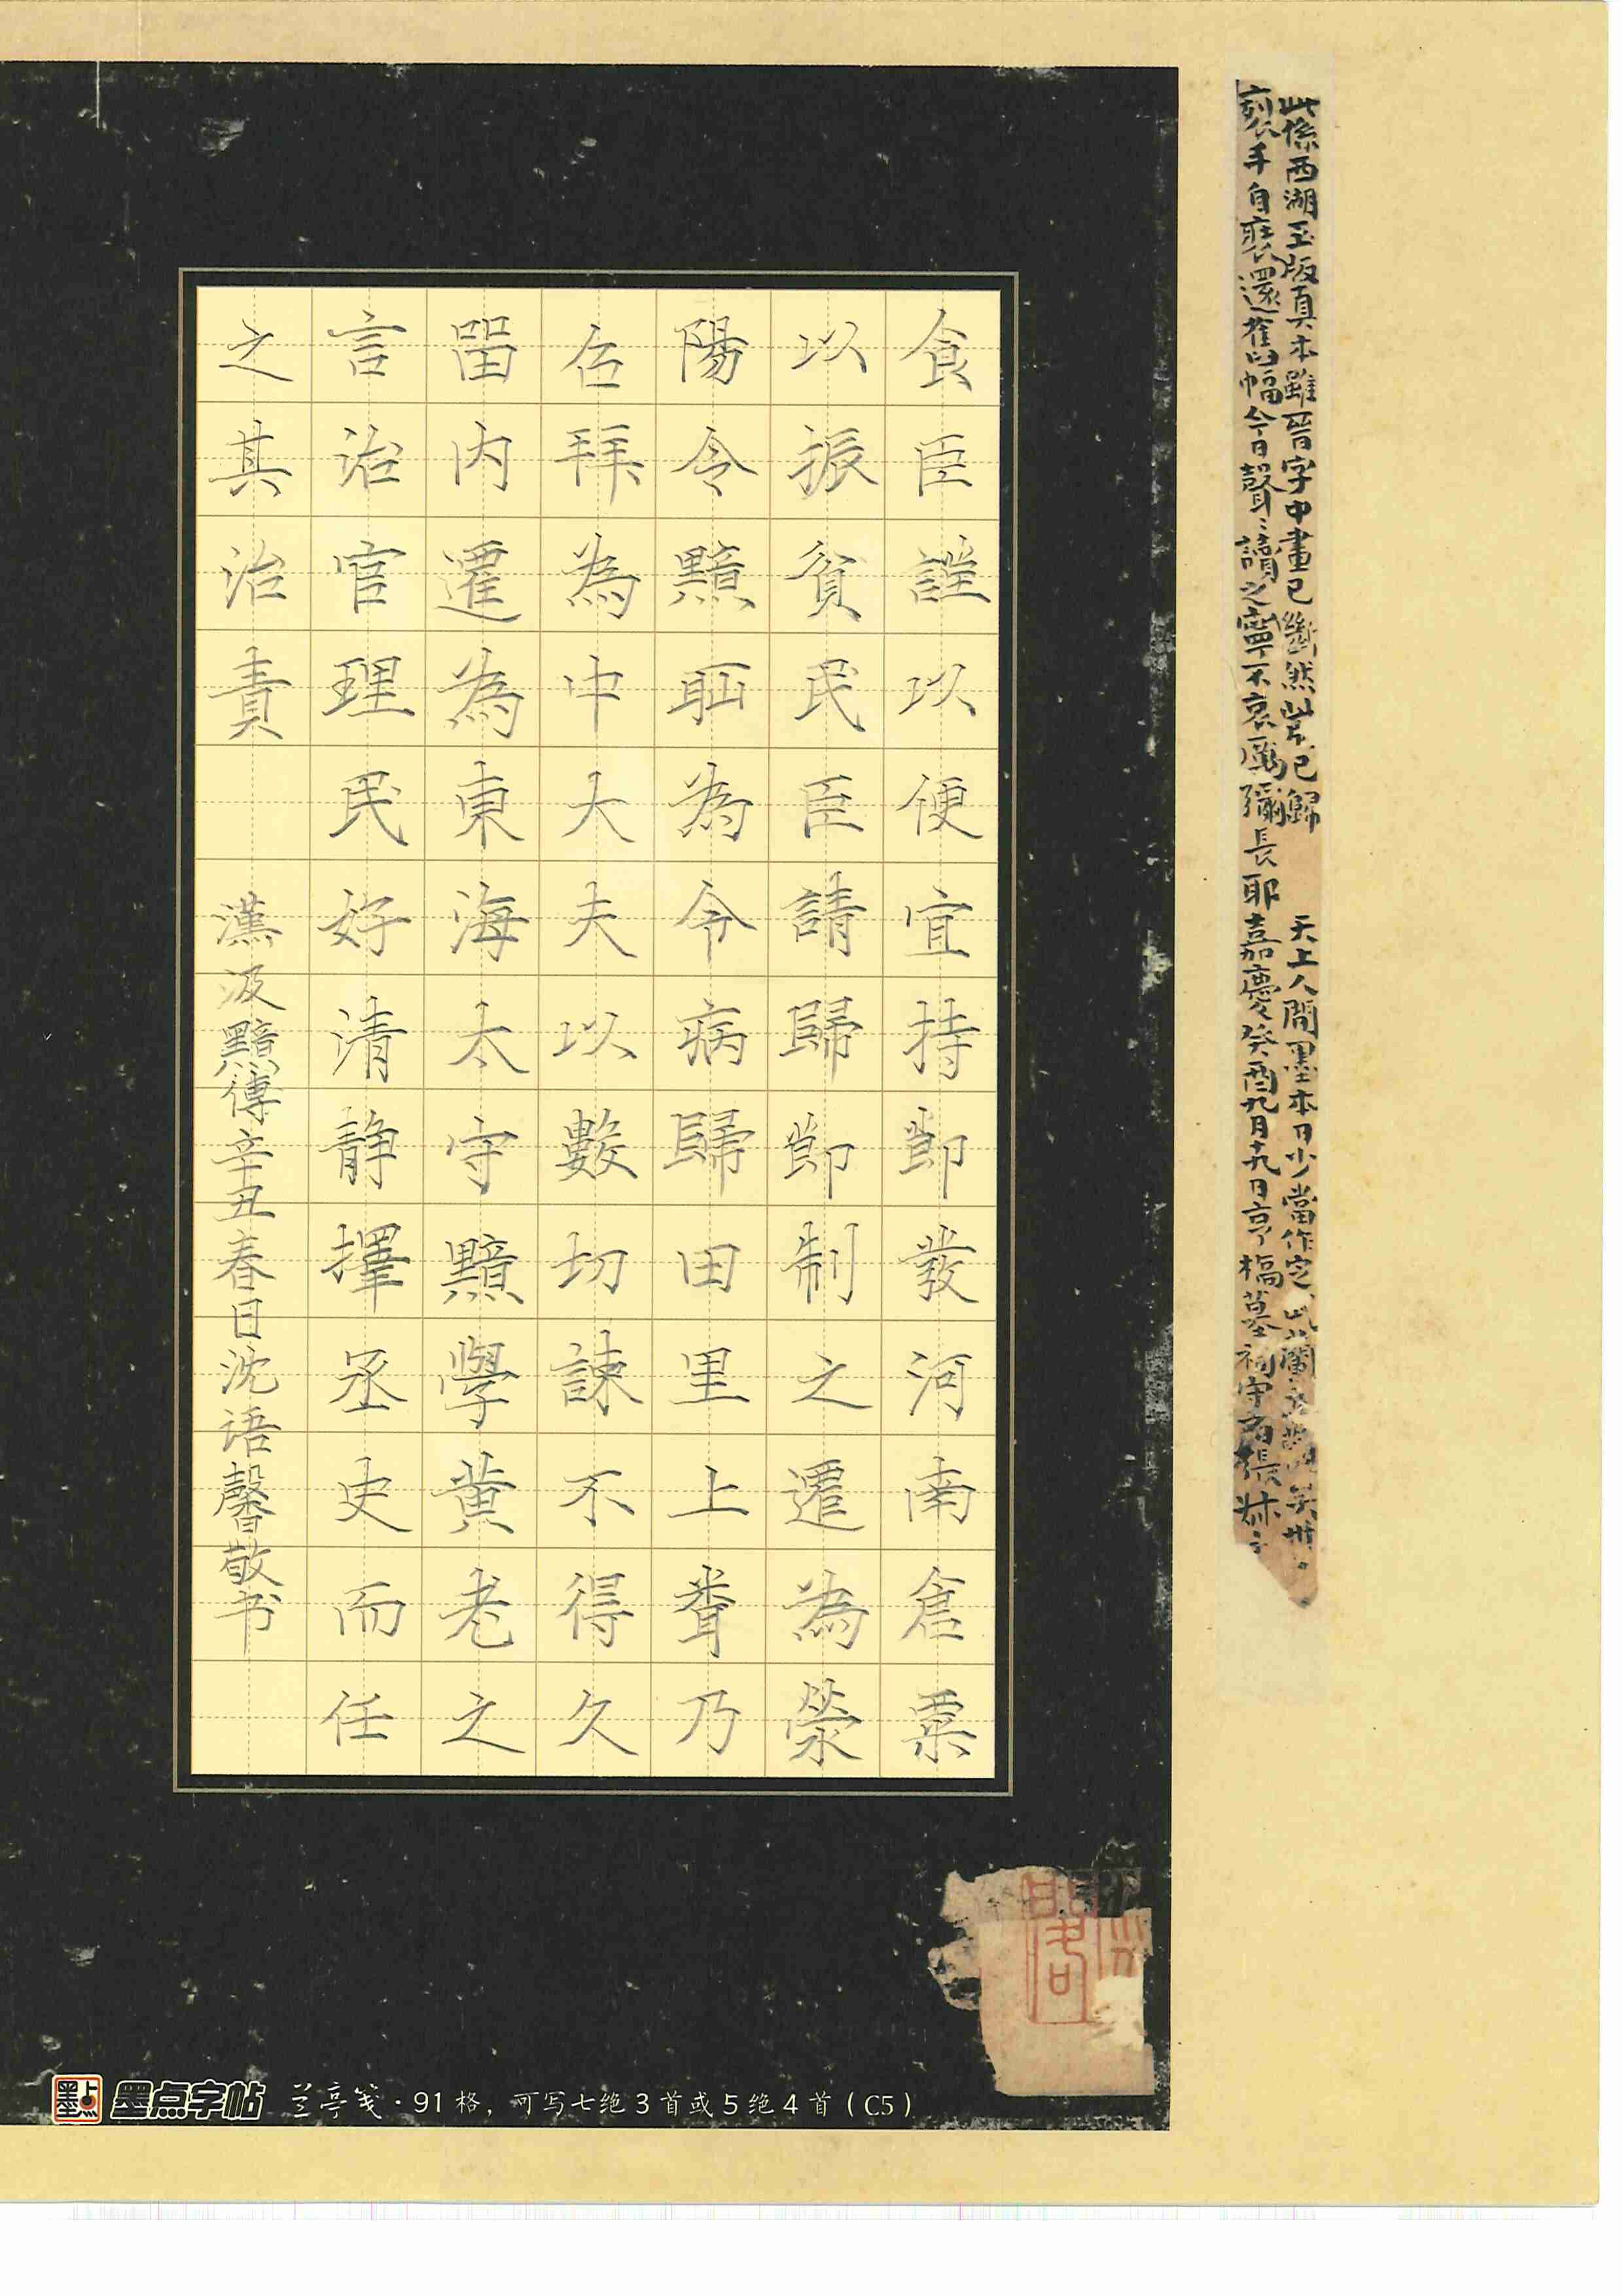 此係西湖玉版真本雖晉字中畫已斷然此片已歸 天上人間墨本日少當作定
裂手自裝還舊幅今日聲ミ讀之寧不哀
長耶嘉慶癸酉九月十九日
食臣謹以便宜持節發河南倉粟
以振貧民臣請歸節制之遷為滎
陽令黯恥為令病歸田里上聞乃
召拜為中大夫以數切諫不得久
留內遷為東海太守黯學黃老之
言治官理民好清静擇丞史而任
之其治責
漢汲黯傳辛丑春日沈语馨敬书
墨点字帖 兰亭笺·91格，可写七绝3首或5绝4首（C5）